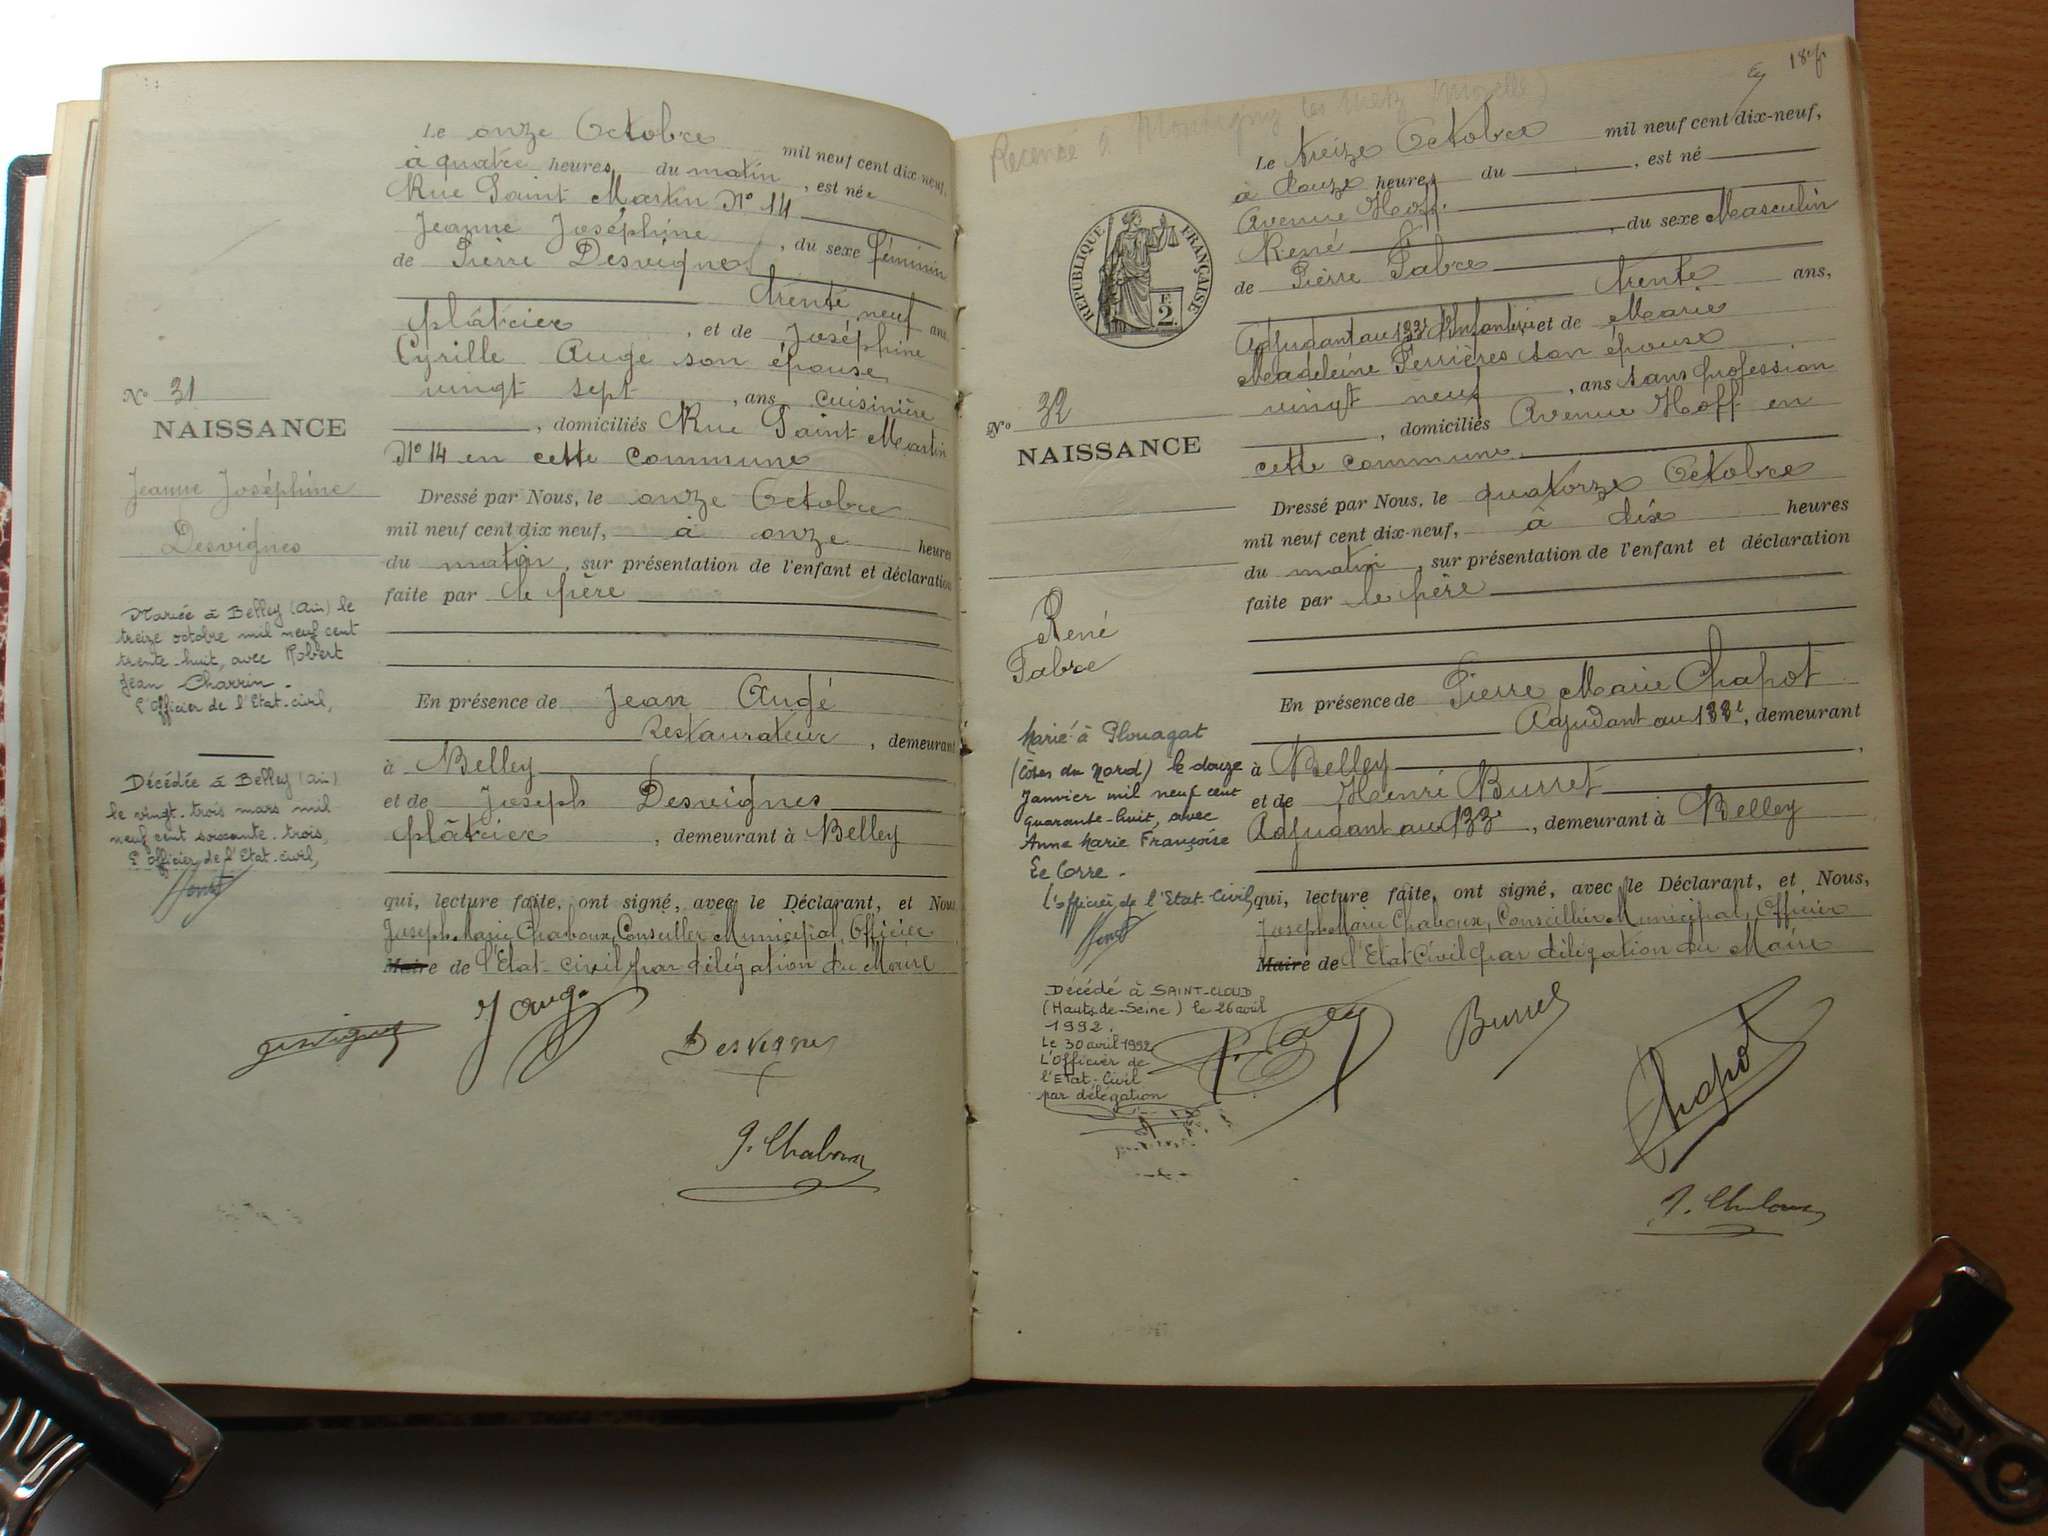 Le onze Octobre mil neuf cent dix-neuf,
à quatre heures du matin, est née
Rue Saint Martin N° 14
Jeanne Joséphine, du sexe féminin
de Pierre Desvignes
trente neuf ans,
plâtrier, et de Joséphine
Cyrille Augé son épouse
vingt sept, ans cuisinière
, domiciliés Rue Saint Martin
N° 14 en cette commune
Dressé par Nous, le onze Octobre
mil neuf cent dix neuf, à onze heures
du matin, sur présentation de l'enfant et déclaration
faite par le père
En présence de Jean Augé
Restaurateur, demeurant
à Belley
et de Joseph Desvignes
plâtrier, demeurant à Belley
qui, lecture faite, ont signé, avec le Déclarant, et Nous
Joseph Marie Chaboux, Conseiller Municipal, Officier
Maire de l'Etat-civil par délégation du Maire
J Augé
Desvignes
J. Chaboux
N° 31
NAISSANCE
Jeanne Joséphine
Desvignes
Mariée à Belley (Ain) le
treize octobre mil neuf cent
trente-huit, avec Robert
Jean Charrin.
L'Officier de l'Etat-civil,
Décédée à Belley (Ain)
le vingt-trois mars mil
neuf cent soixante-trois,
L'officier de l'Etat-civil,
18 
Recensé à Montigny les Metz (Moselle)
Le treize Octobre mil neuf cent dix-neuf,
à douze heures du , est né
Avenue Hoff.
René, du sexe Masculin
de Pierre Fabre
trente ans,
Adjudant au 133e d'Infanterie et de Marie
Madeleine Ferrières son épouse
vingt neuf, ans sans profession
, domiciliés Avenue Hoff en
cette commune
Dressé par Nous, le quatorze Octobre
mil neuf cent dix-neuf, à dix heures
du matin, sur présentation de l'enfant et déclaration
faite par le père
En présence de Pierre Marie Chapot
Adjudant au 133e, demeurant
à Belley
et de Henri Burret
Adjudant au 133e, demeurant à Belley
qui, lecture faite, ont signé, avec le Déclarant, et Nous,
Joseph Marie Chaboux, Conseiller Municipal, Officier
Maire de l'Etat Civil par délégation du Maire
Burret
Chapot
J. Chaboux
RÉPUBLIQUE FRANÇAISE
F.
2.
N° 32
NAISSANCE
René
Fabre
Marié à Plouagat
(Côtes du Nord) le douze
Janvier mil neuf cent
quarante-huit, avec
Anne Marie Françoise
Le Corre.
L'officier de l'Etat-Civil,
Décédé à SAINT-CLOUD
(Hauts-de-Seine) le 26 avril
1992.
Le 30 avril 1992
L'Officier de
l'Etat-Civil
par délégation